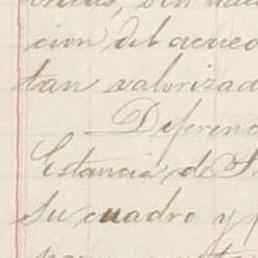 cion del acreed
tan valorizad
Diferenc
Estancia de S
Su cuadro y p